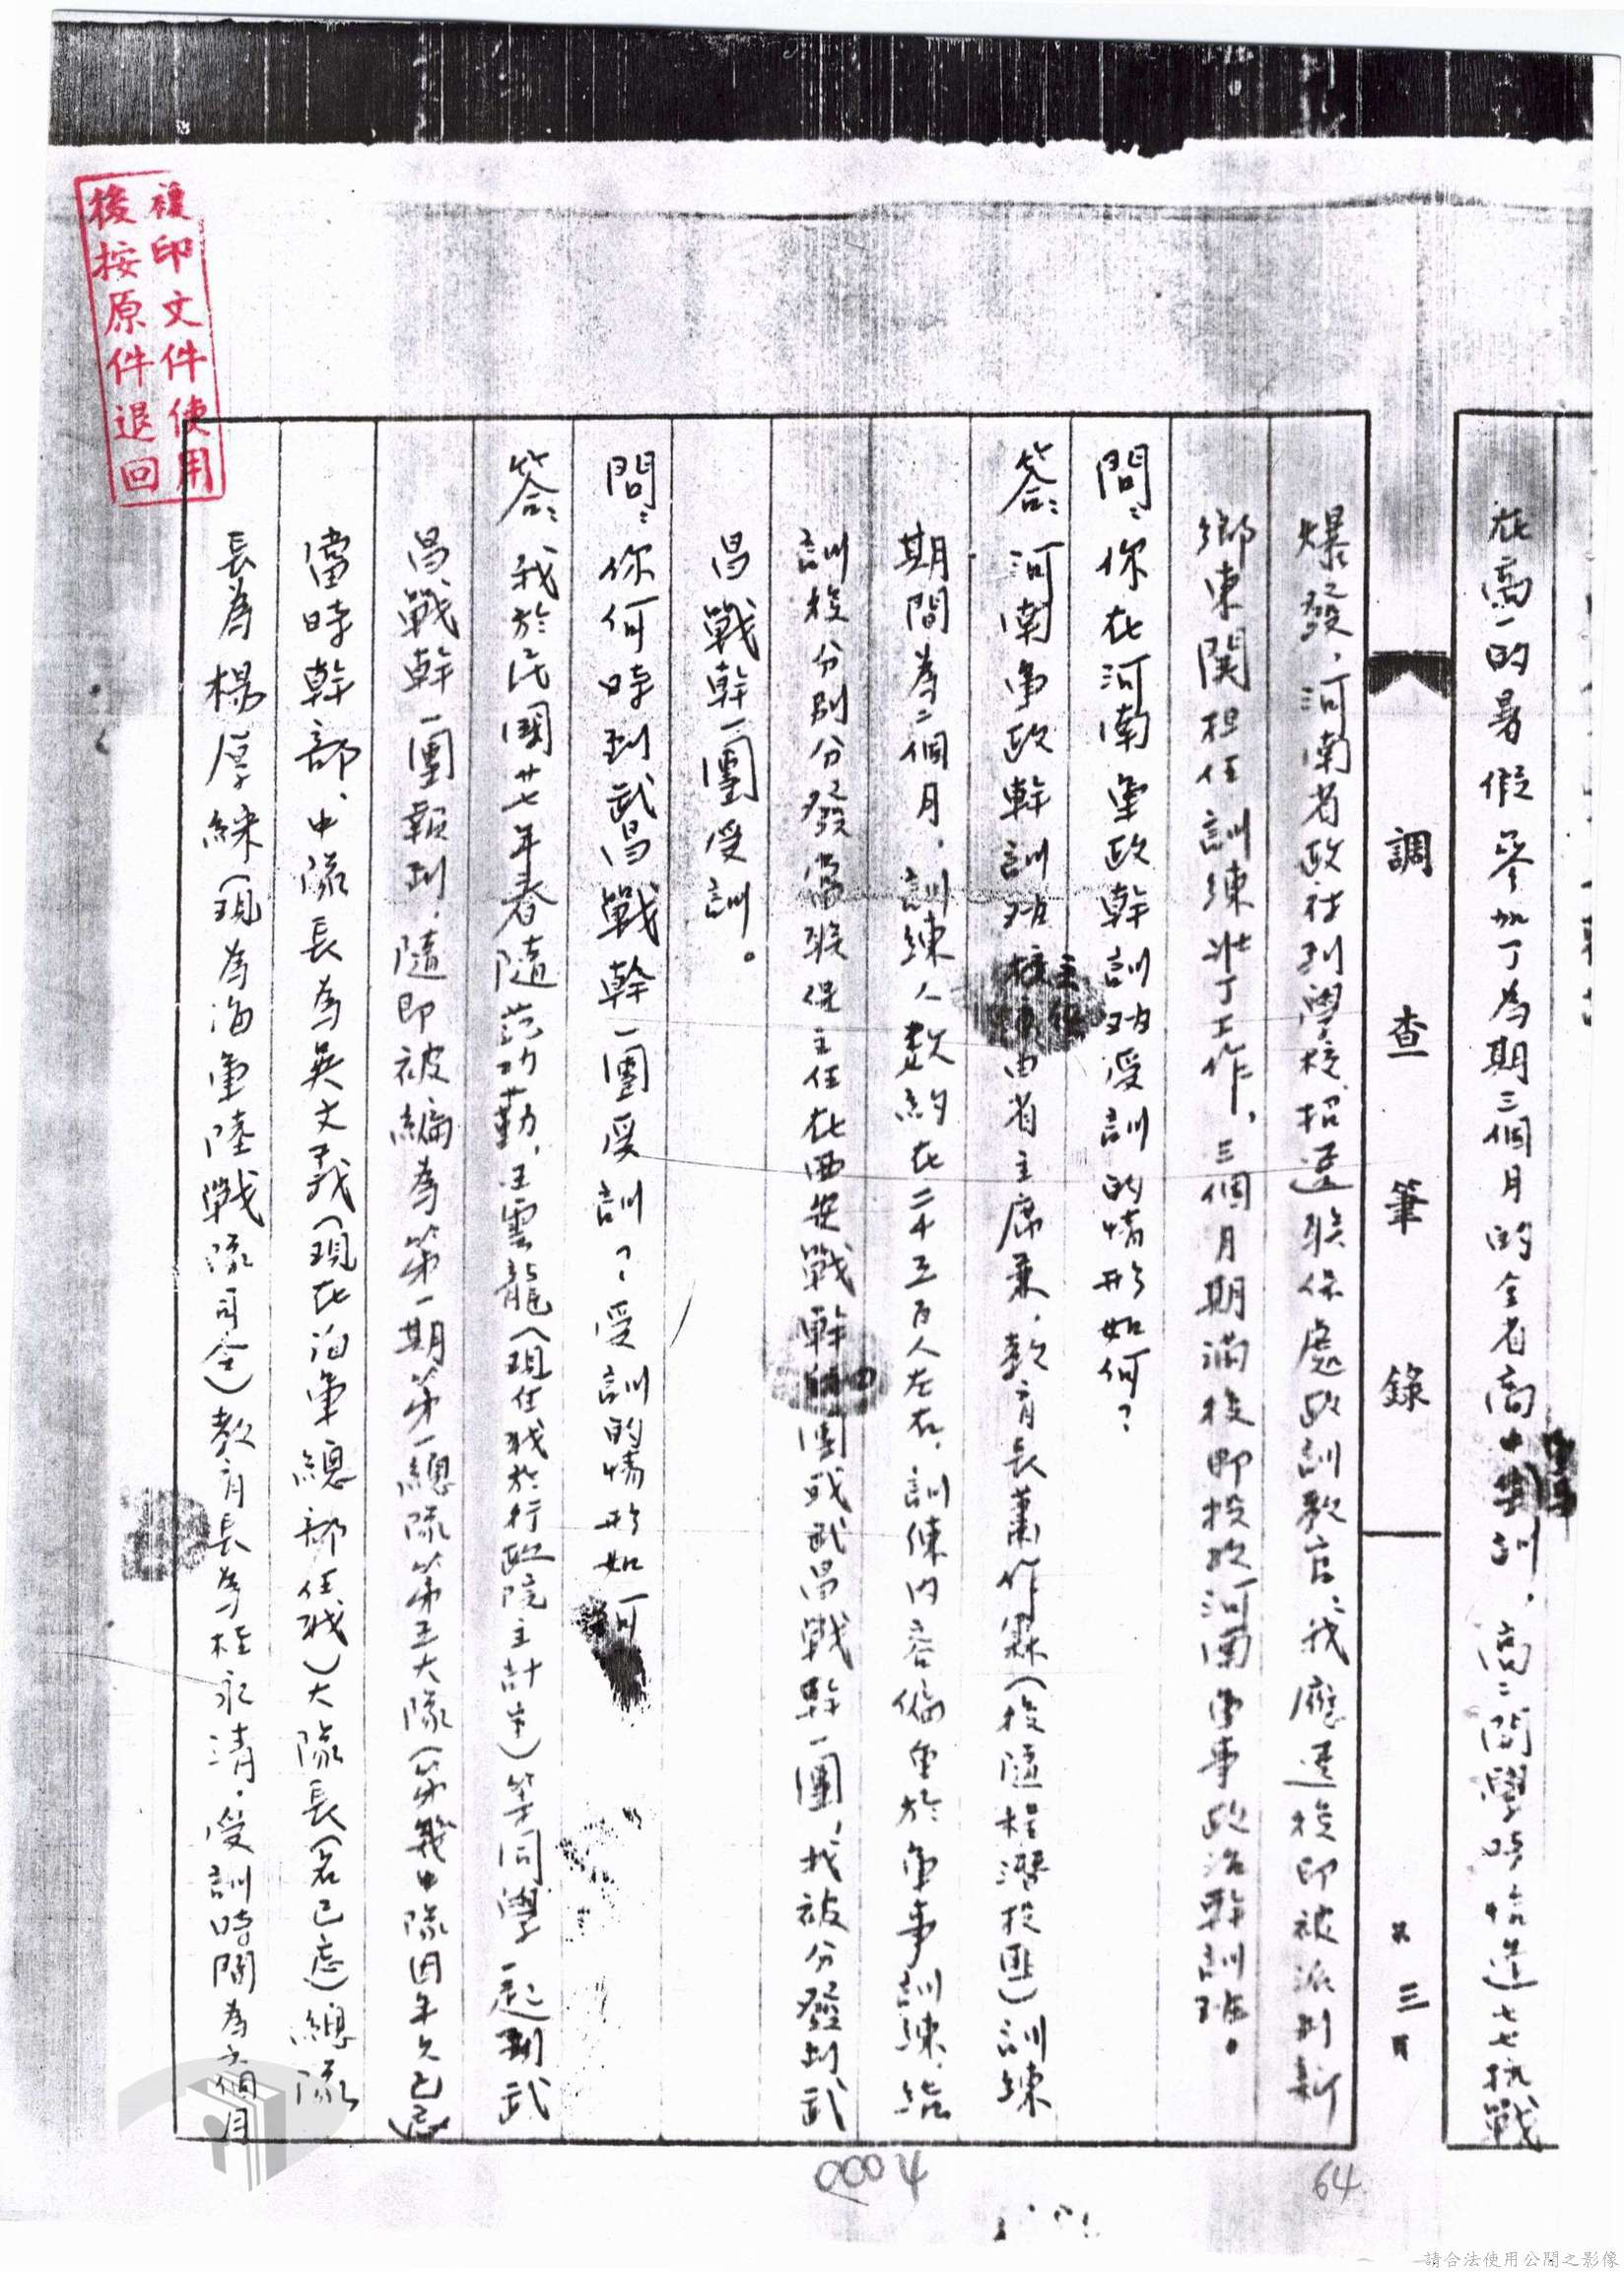 在高一的暑假參加了為期三個月的全省高中集訓，高二開學時恰逢七七抗戰
調查筆錄
第三頁
爆發，河南省政府到學校招選聯保處政訓教官，我應選後即被派到新
鄉東關担任訓練壯丁工作，三個月期滿後即投效河南軍事政治幹訓班。
問：你在河南軍政幹訓班受訓的情形如何？
答：河南軍政幹訓班主任由省主席兼，教育長蕭作霖（後隨程潛投匪）訓練
期間為二個月，訓練人數約在二千五百人左右，訓練內容偏重於軍事訓練，結
訓後分別分發當聯保主任在西安戰幹四團或武昌戰幹一團，我被分發到武
昌戰幹一團受訓。
問：你何時到武昌戰幹一團受訓？受訓的情形如何
答：我於民國廿七年春隨范功勤、王雲龍（現任職於行政院主計處）等同學一起到武
昌戰幹一團報到，隨即被編為第一期第一總隊第三大隊（第幾中隊因年久已忘）
當時幹部，中隊長為吳文義（現在海軍總部任職）大隊長（名已忘）總隊
長為楊厚綵（現為海軍陸戰隊司令）教育長為桂永清。受訓時間為六個月
複印文件使用
後按原件退回
64
請合法使用公開之影像